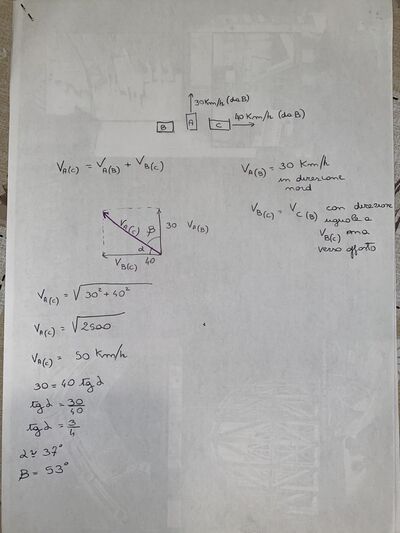 30 Km/h (da B)
B A C 40 Km/h (da B)
V_A(C) = V_A(B) + V_B(C)
V_A(B) = 30 Km/h
in direzione
nord
V_B(C) = V_C(B) con direzione
uguale a
V_B(C) ma
verso opposto
V_A(C) β 30 V_A(B)
α
V_B(C) 40
V_A(C) = √30² + 40²
V_A(C) = √2500
V_A(C) = 50 Km/h
30 = 40 tg α
tg α = 30/40
tg α = 3/4
α ≃ 37°
β = 53°